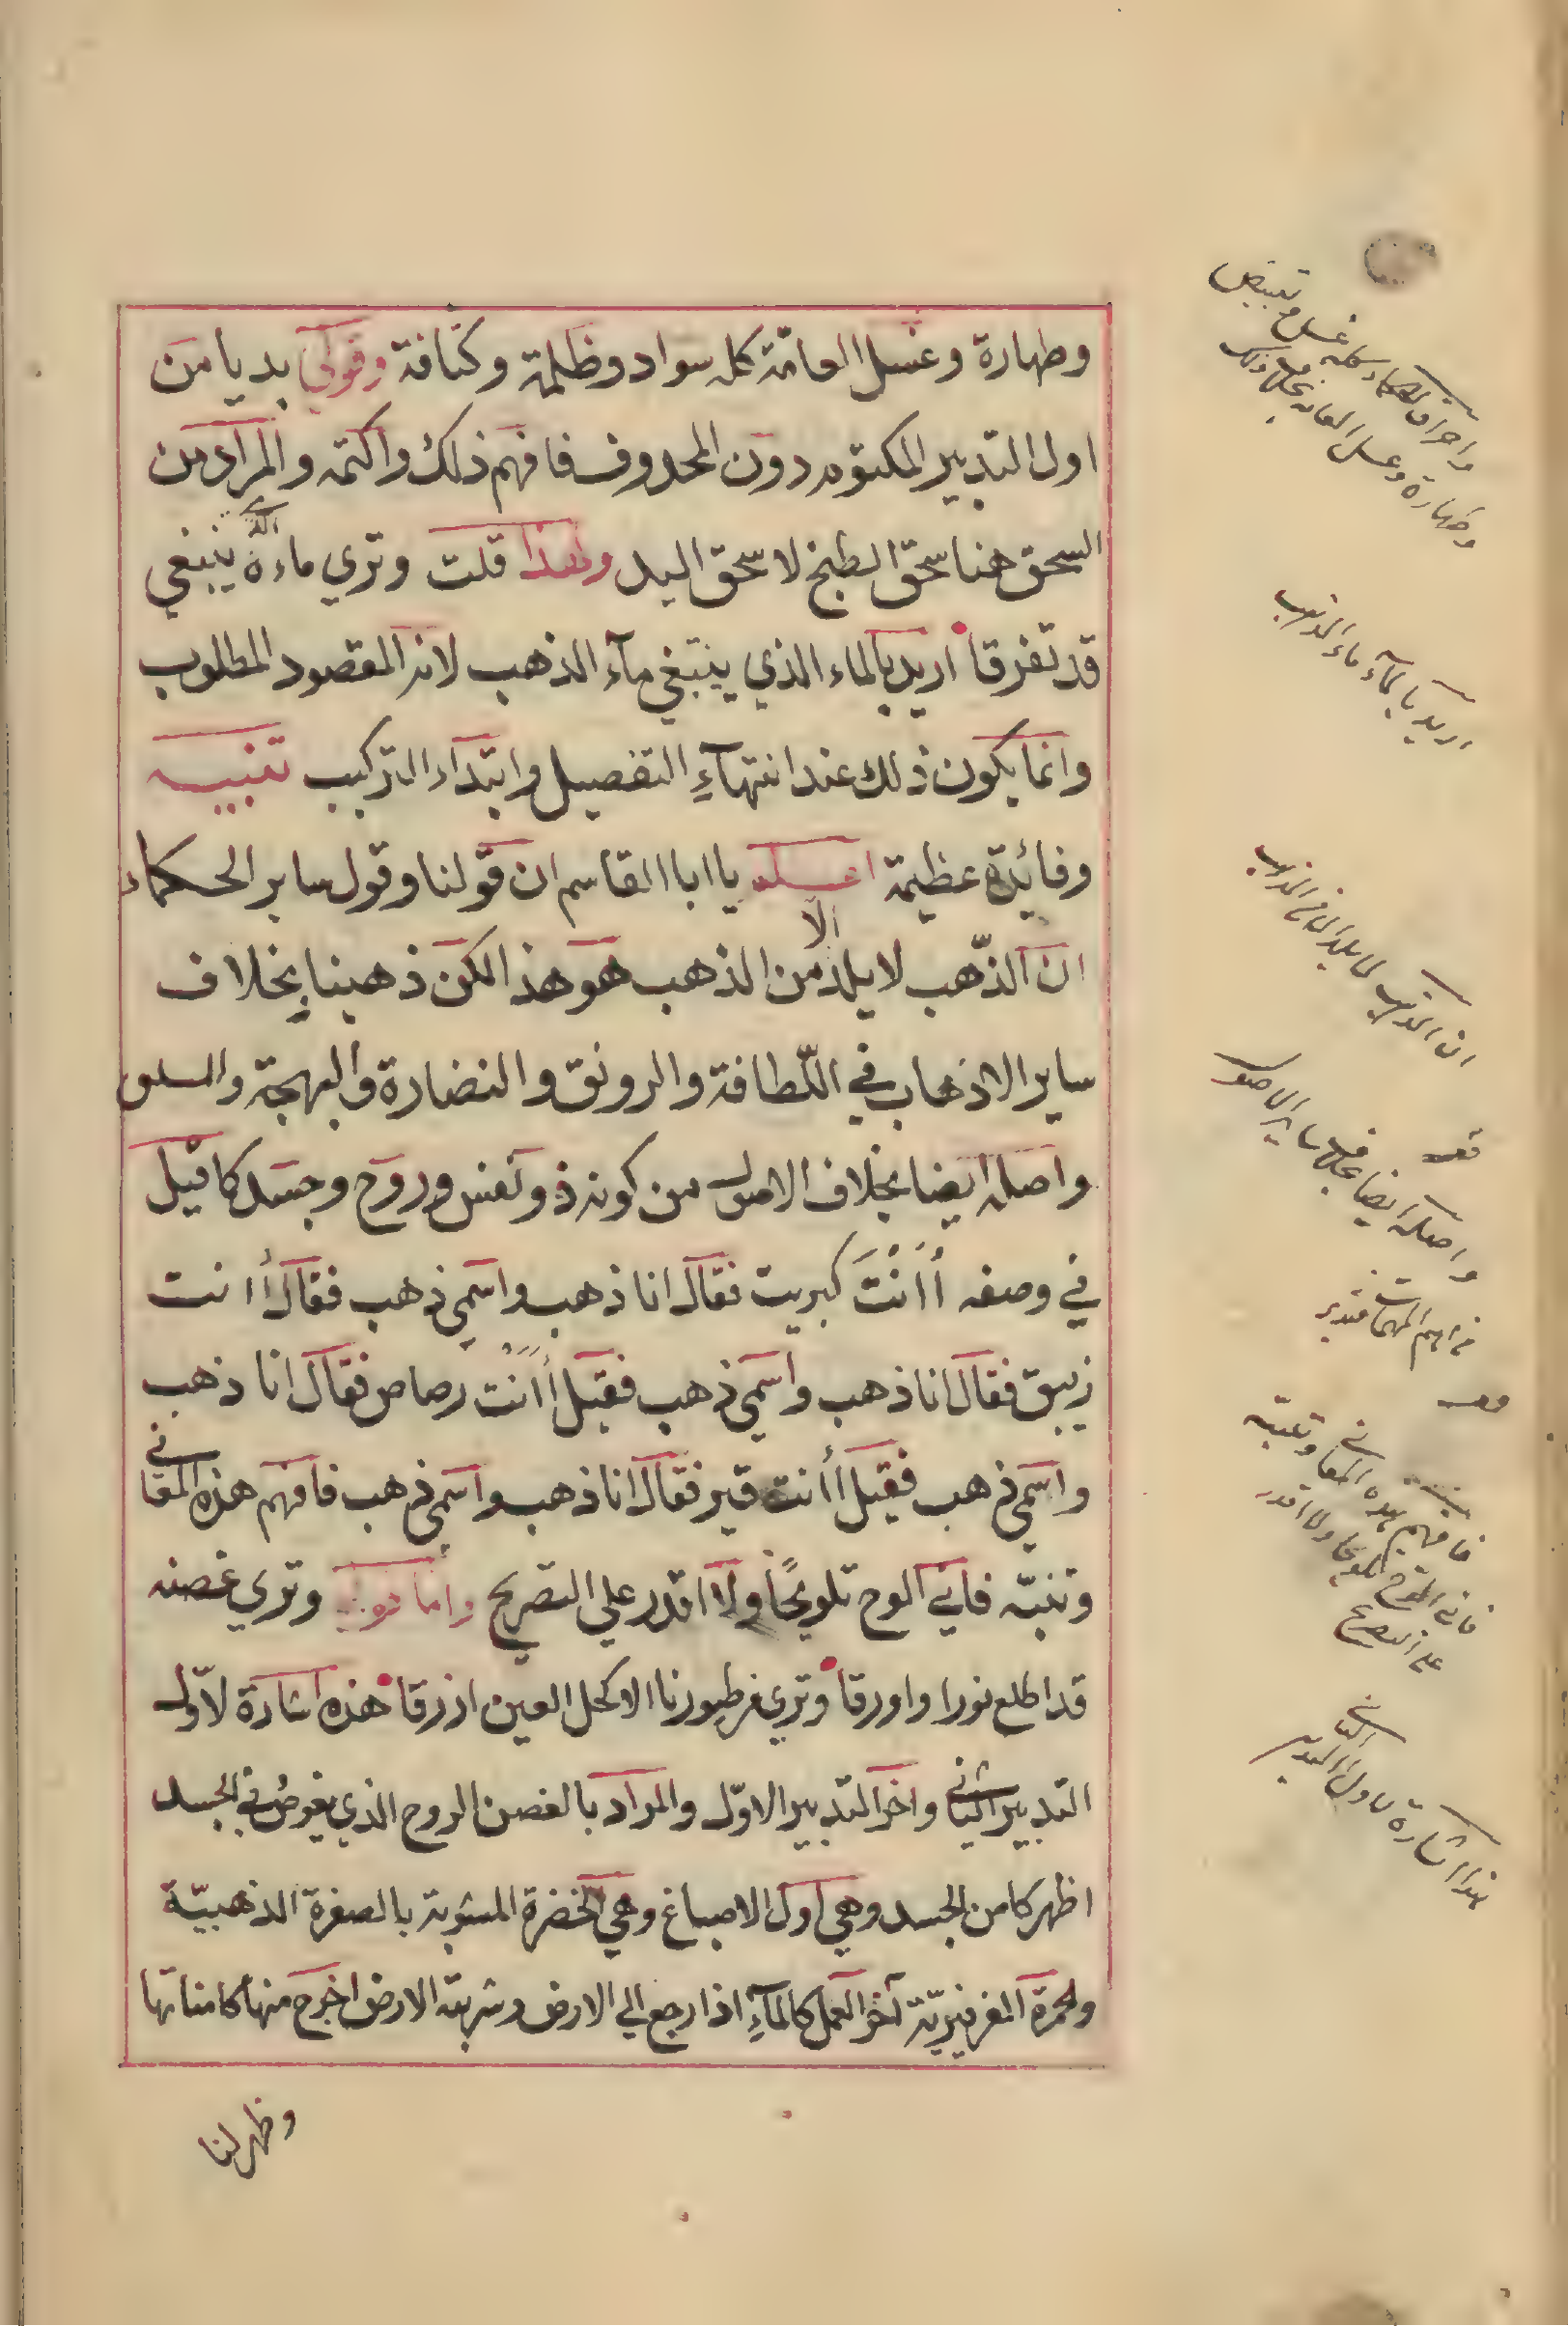 وطهارة وغسل العامّة كله سواد وظلمة وكثافة وقولي بديا من
اول التدبير المكتوم دون المحذوف فافهم ذلك واكتمه والمراد من
السحق هنا سحق الطبخ لا سحق اليد ولهذا قلت وتري ماءه الذي ينبغي
قد تفرقا اريد بالماء الذي ينبغي مآء الذهب لانه المقصود المطلوب
وانما يكون ذلك عند انتهآءِ التفصيل وابتداء التركيب تنبيه
وفائدة عظيمة اعلم يا ابا القاسم ان قولنا وقول ساير الحكماء
ان الذّهب لا يلد الّا من الذهب هو هذا لكن ذهبنا بخلاف
ساير الاذهاب في اللّطافة والرونق والنضارة والبهجة
واصله ايضا بخلاف الاصول من كونه ذو نفس وروح وجسد كما قيل
في وصفه أ أنْتَ كبريت فقال انا ذهب واسمي ذهب فقال أ انت
زيبق فقال انا ذهب واسمي ذهب فقيل أ أنت رصاص فقال انا ذهب
واسمي ذهب فقيل أ أنت قير فقال انا ذهب واسمي ذهب فافهم هذه المعاني
وتنبّه فاني الوح تلويحًا ولا اقدر علي التصريح واما قولي وتري غصنه
قد اطلع نورا واورقا وتري من طيورنا الاكحل العين ازرقا هذه اشارة لاوّل
التدبير الثاني واخر التدبير الاوّل والمراد بالغصن الروح الذي يغوصُ في الجسد
اظهر كامن الجسد وهي اول الاصباغ وهي الخضرة المشوبة بالصفرة الذهبيّة
والحمرة الفرفيريّة آخر العمل كالمآءِ اذا رجع الي الارض وشربته الارض اخرج منها كامناتها
وظهر لنا
واحراق الحكماء كله غسل وتبييض
وطهارة وغسل العامه بخلاف ذلك
اريد بالمآء ماء الذهب
ان الذهب لا يلد الا من الذهب
واصله ايضا بخلاف ساير الاصول
فافهم هذه المعاني وتنبّه
فاني الوح تلويحا ولا اقدر
على التصريح
هذا اشارة لاول التدبير الثاني